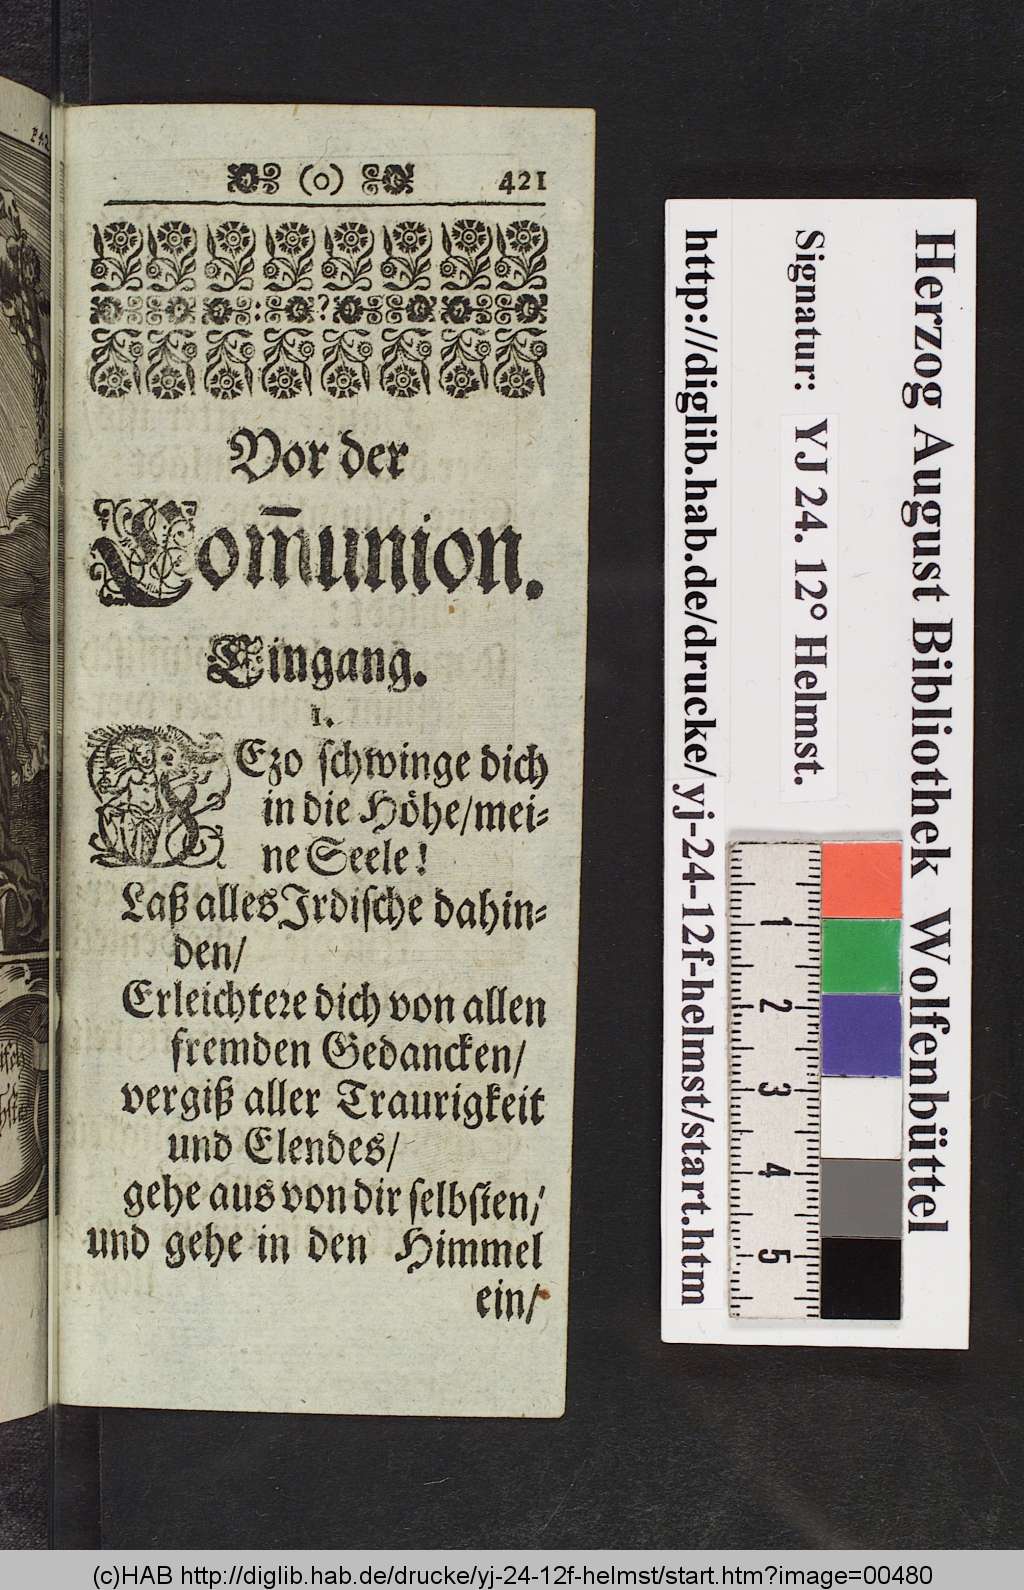 (o) 421
Vor der
Com̃union.
Eingang.
1.
JEzo schwinge dich
in die Höhe/mei-
ne Seele!
Laß alles Irdische dahin-
den/
Erleichtere dich von allen
fremden Gedancken/
vergiß aller Traurigkeit
und Elendes/
gehe aus von dir selbsten/
und gehe in den Himmel
ein/
Herzog August Bibliothek Wolfenbüttel
Signatur: YJ 24. 12° Helmst.
http://diglib.hab.de/drucke/yj-24-12f-helmst/start.htm
1
2
3
4
5
(c)HAB http://diglib.hab.de/drucke/yj-24-12f-helmst/start.htm?image=00480